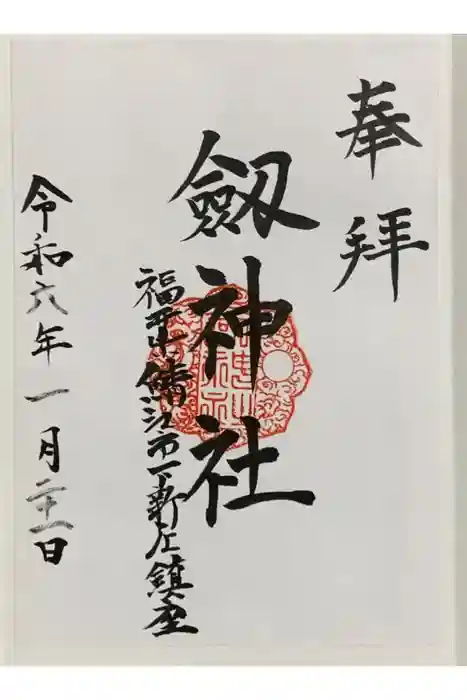 奉拝
劒神社
福井県鯖江市下新庄鎮座
令和六年一月二十一日